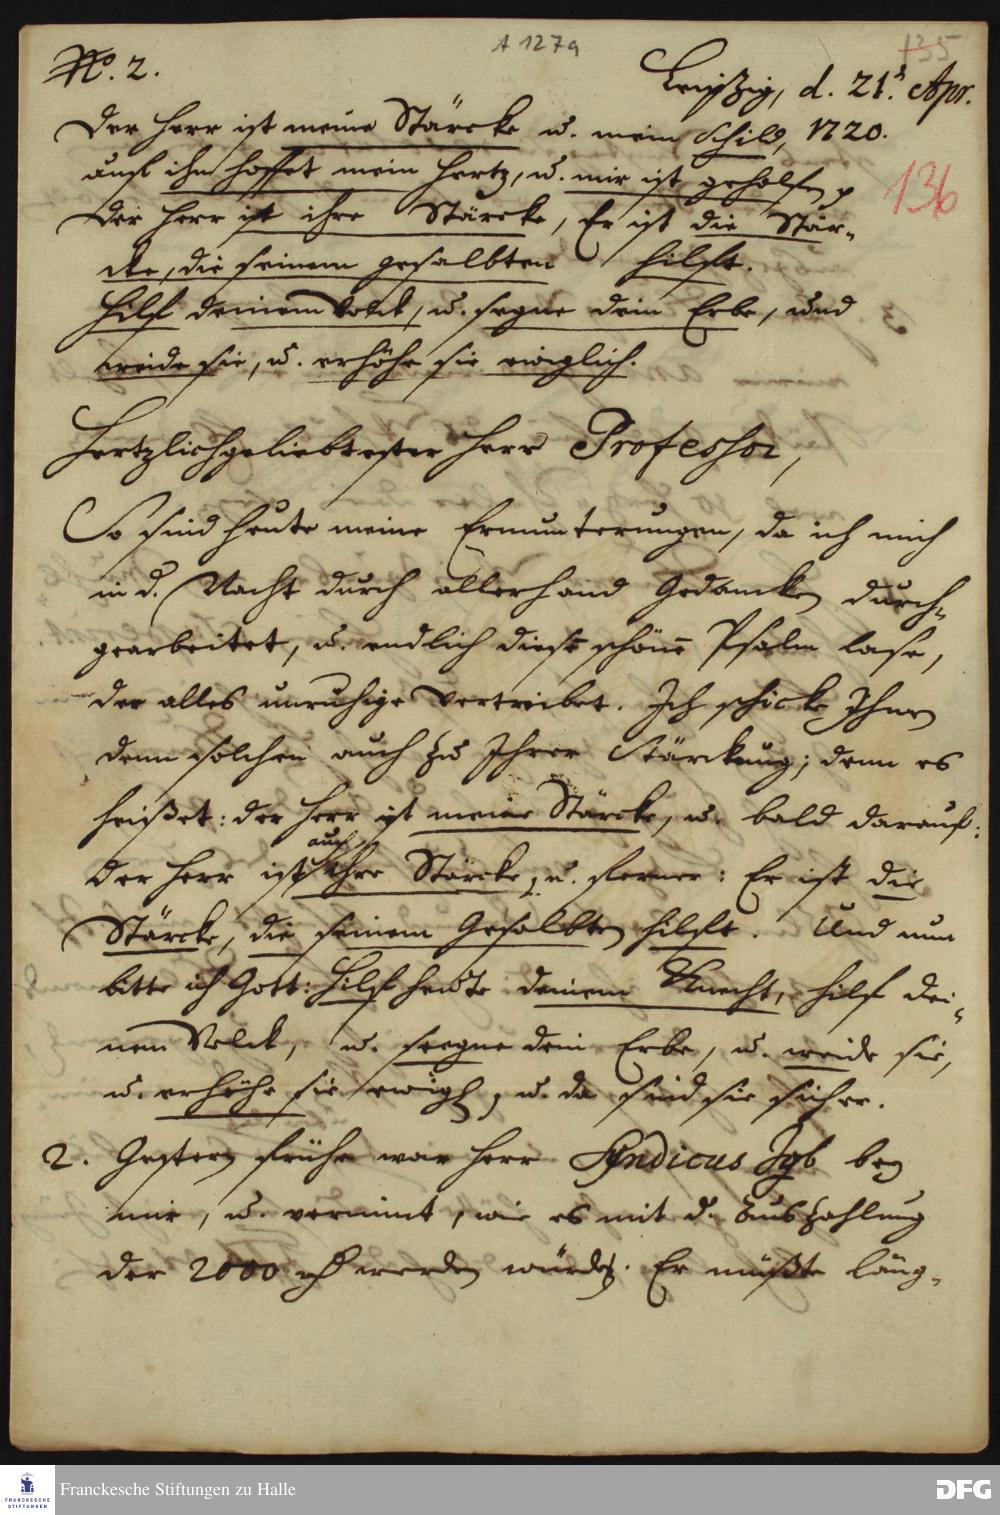 A 127a
135
No. 2.
Leipzig, d. 21t. Apr.
Der Herr ist meine Stärcke u. mein Schild, 1720.
auf ihn hoffet mein Hertz, u. mir ist geholfen p
136
Der Herr ist ihre Stärcke, Er ist die Stär-
cke, die seinem gesalbten hilft.
Hilf deinem Volck, u. segne dein Erbe, und
weide sie, u. erhöhe sie ewiglich.
Hertzlichgeliebtester Herr Professor,
So sind heute meine Ermunterungen, da ich mich
in d. Nacht durch allerhand Gedancken durch-
gearbeitet, u. endlich diese schöne Psalm lase,
der alles unruhige vertreibet. Ich schicke Ihnen
denn solchen auch zu Ihrer Stärckung; denn es
heißet: der Herr ist meine Stärcke, u. bald darauf:
auch
der Herr ist ihre Stärcke, u. ferner: Er ist die
Stärcke, die seinem Gesalbten hilft. Und nun
bitte ich Gott: Hilf heute deinem Knecht, hilf dei-
nem Volck, u. seegne dein Erbe, u. weide sie,
u. erhöhe sie ewigl, u. da sind sie sicher.
2. Gestern frühe war Herr Syndicus bey
mir, u. vernimt, wie es mit d. Auszahlung
der 2000 werden würde. Er müßte läng-
FRANCKESCHE STIFTUNGEN
Franckesche Stiftungen zu Halle
DFG